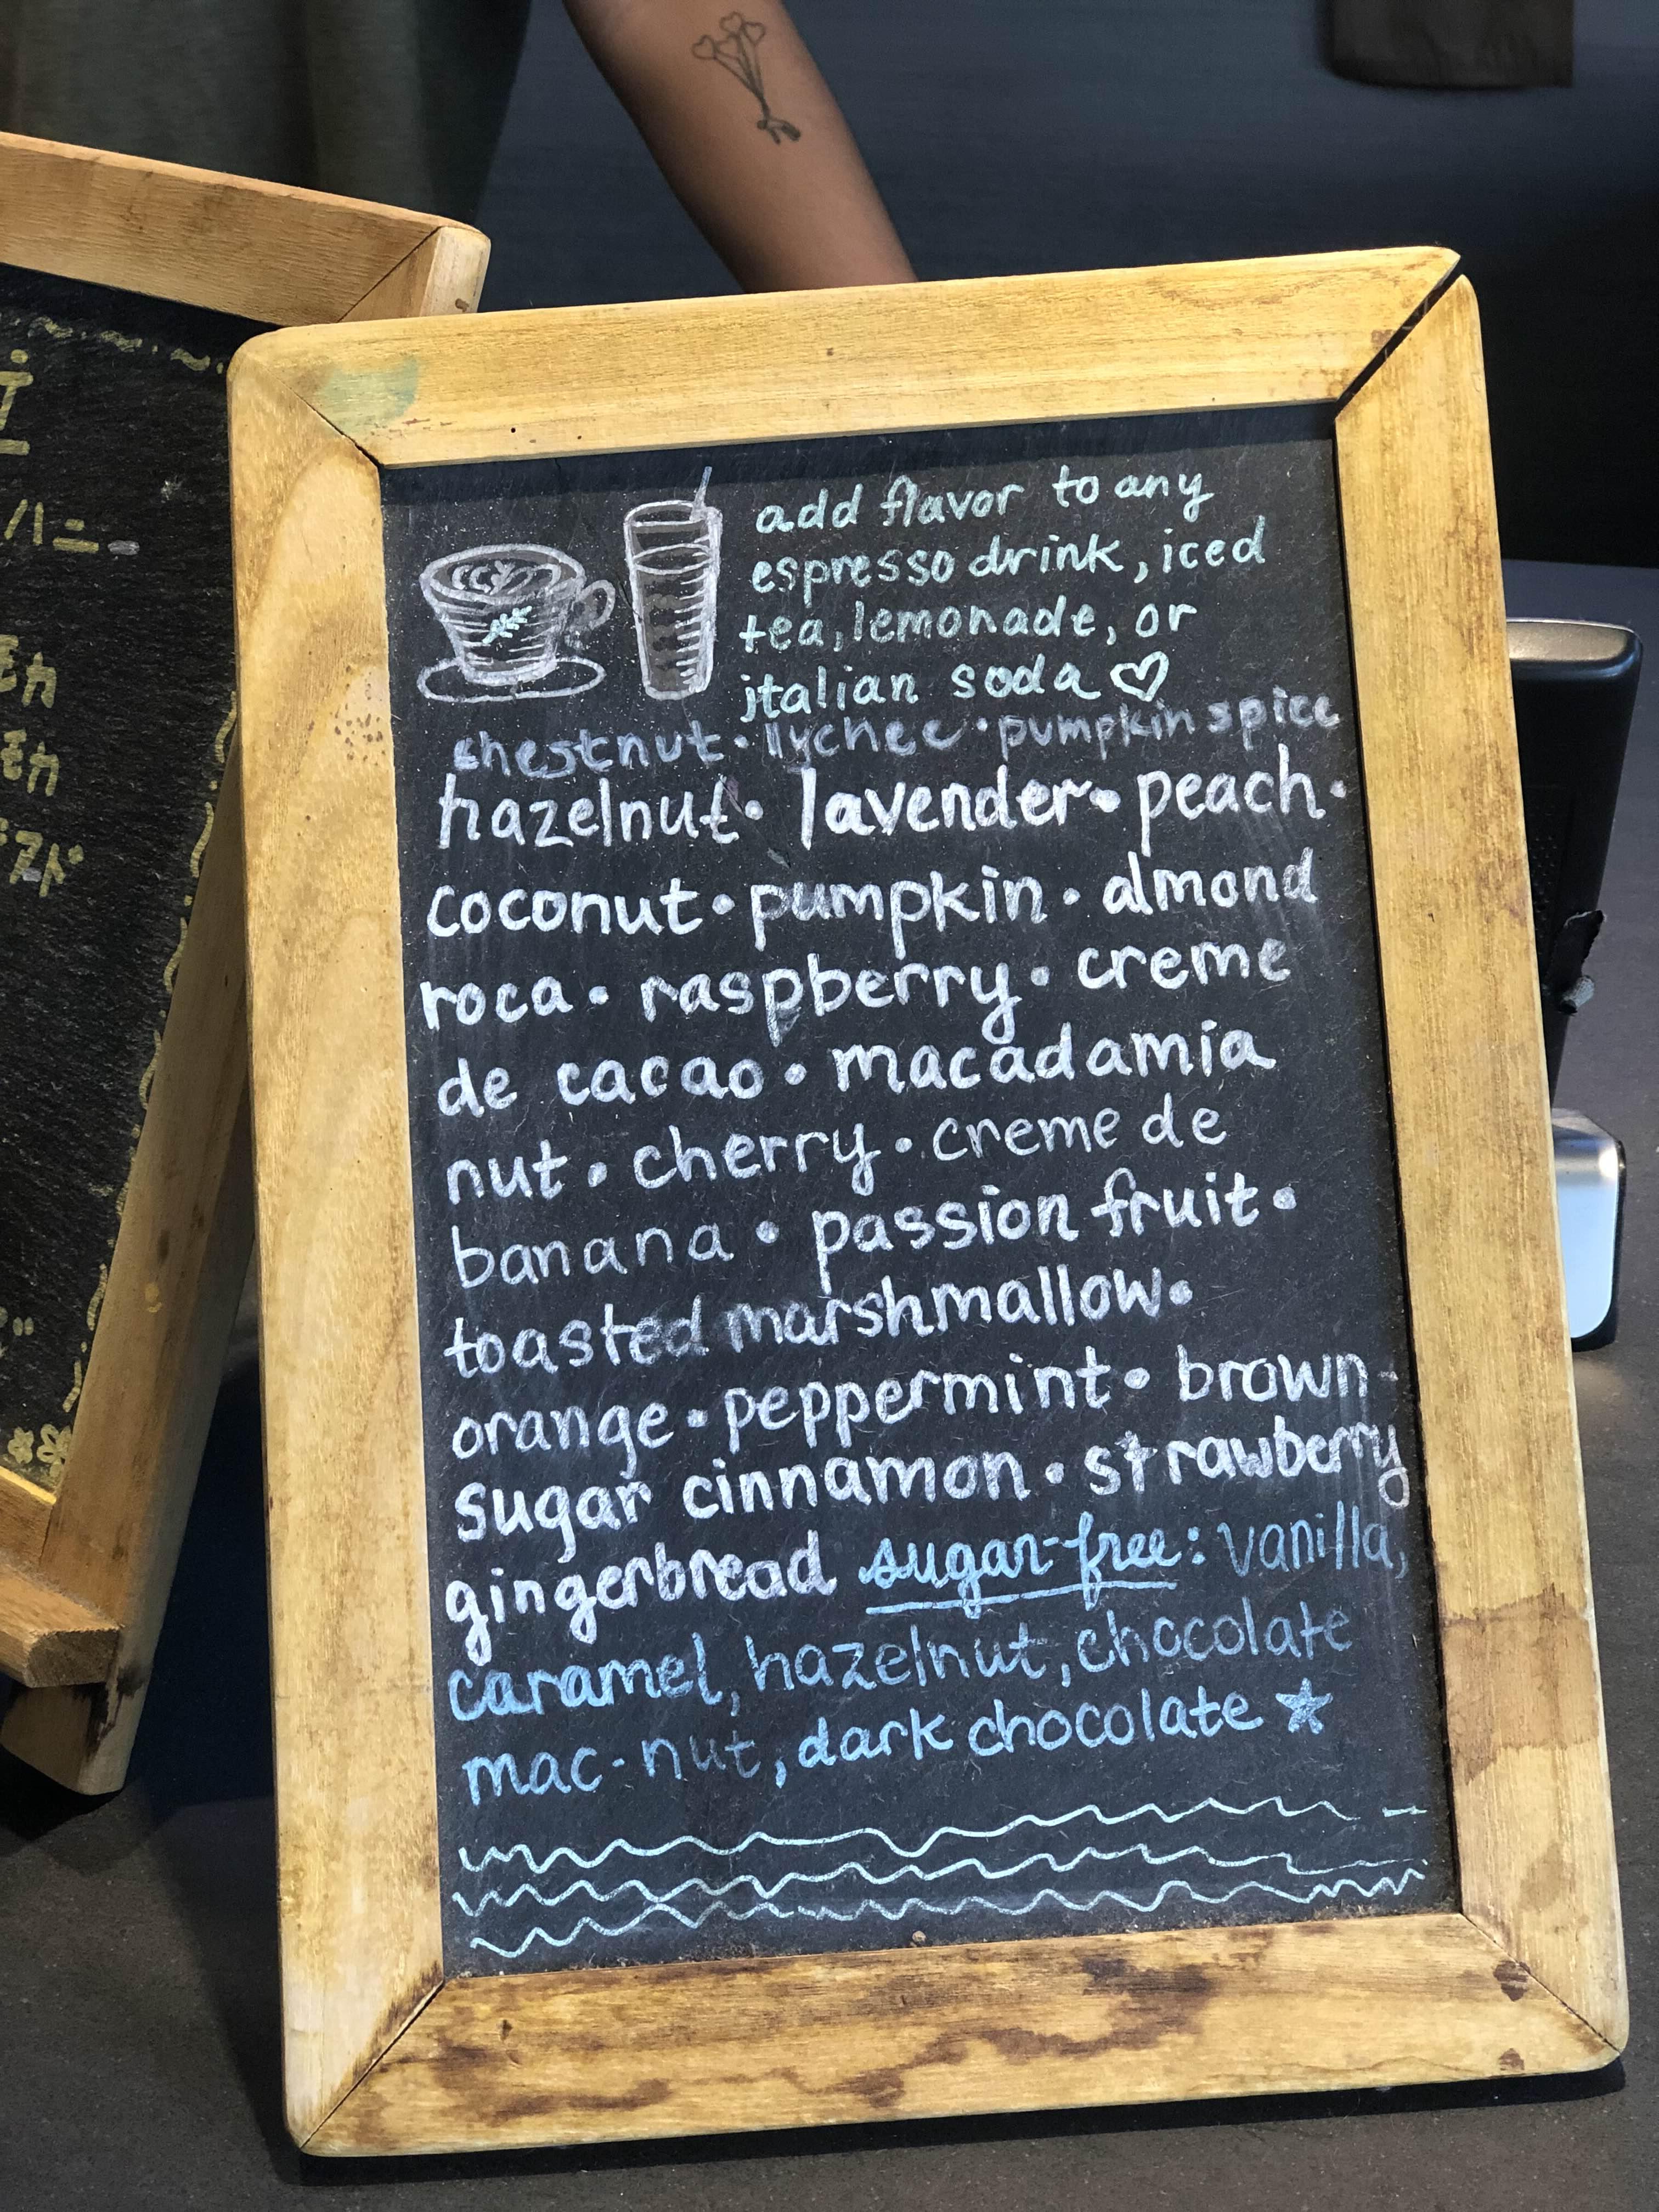 add flavor to any
espresso drink, iced
tea, lemonade, or
italian soda ♡
chestnut • lychee • pumpkin spice
hazelnut • lavender • peach •
coconut • pumpkin • almond
roca • raspberry • creme
de cacao • macadamia
nut • cherry • creme de
banana • passion fruit •
toasted marshmallow •
orange • peppermint • brown-
sugar cinnamon • strawberry
gingerbread sugar-free: vanilla,
caramel, hazelnut, chocolate
mac-nut, dark chocolate ★
ハニー
モカ
モカ